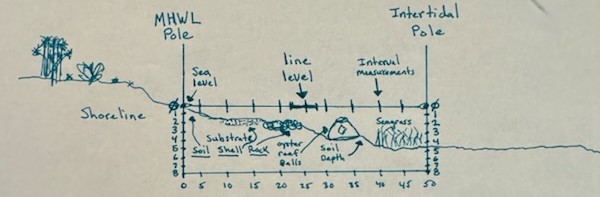 MHWL
Pole
Intertidal
Pole
Sea
level
line
level
Interval
measurements
Shoreline
Ø
1
2
3
4
5
6
7
8
Substrate
Soil Shell Rock
oyster
reef
Balls
Soil
Depth
Seagrass
Ø
1
2
3
4
5
6
7
8
0 5 10 15 20 25 30 35 40 45 50